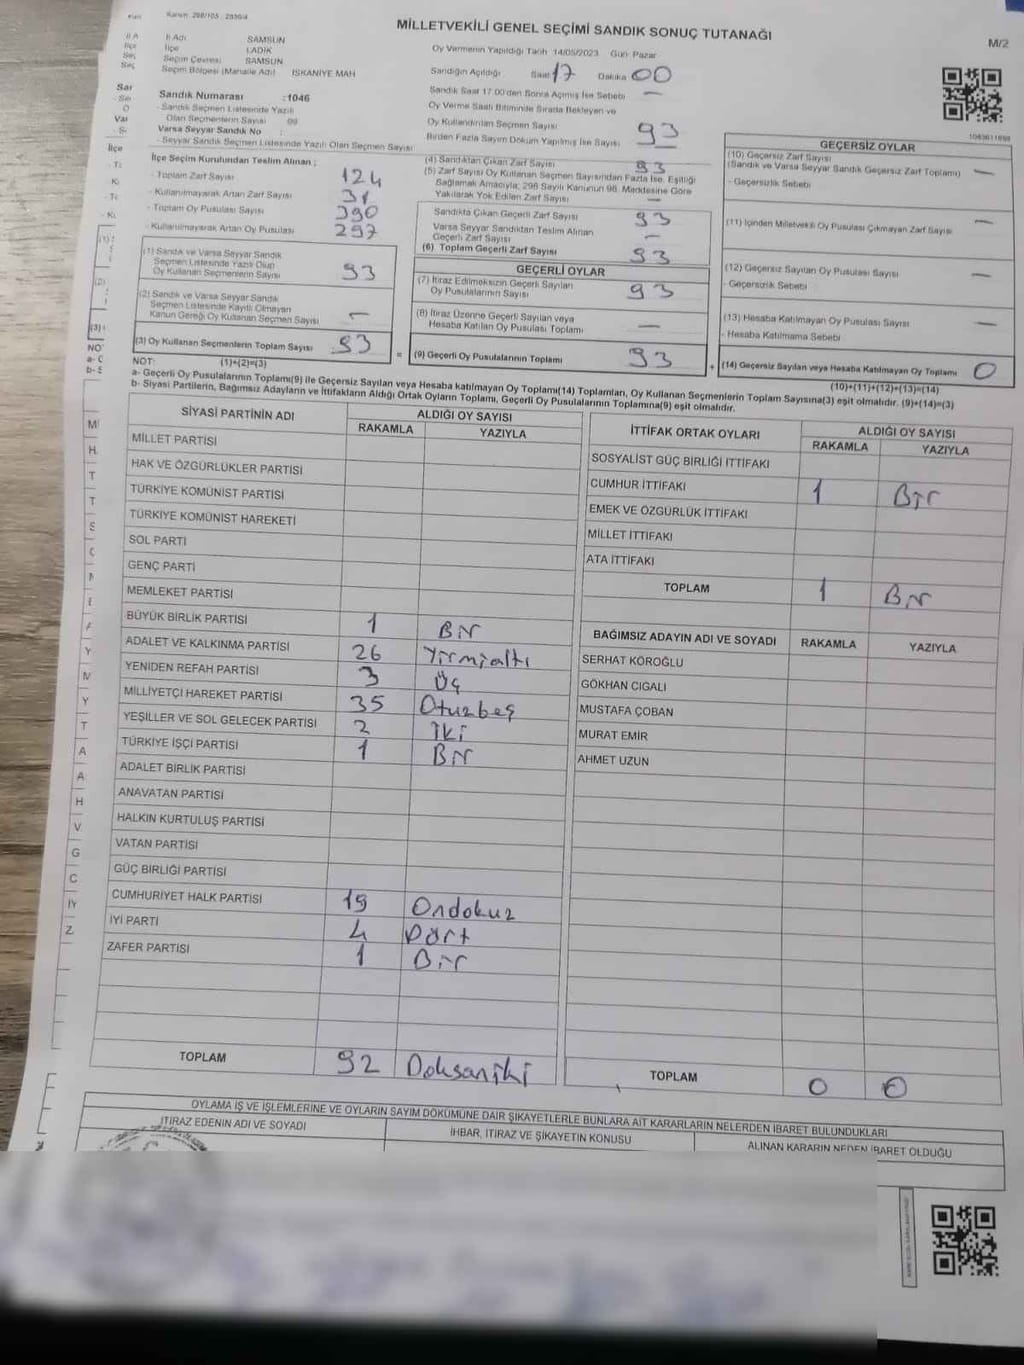 Kanun 298/105 2839/4
MİLLETVEKİLİ GENEL SEÇİMİ SANDIK SONUÇ TUTANAĞI
M/2
İl Adı SAMSUN
İlçe LADİK
Seçim Çevresi SAMSUN
Seçim Bölgesi (Mahalle Adı) İSKANİYE MAH
Sandık Numarası :1046
- Sandık Seçmen Listesinde Yazılı
Olan Seçmenlerin Sayısı
Varsa Seyyar Sandık No :
- Seyyar Sandık Seçmen Listesinde Yazılı Olan Seçmen Sayısı
Oy Vermenin Yapıldığı Tarih 14/05/2023 Gün Pazar
Sandığın Açıldığı Saat 17 Dakika 00
Sandık Saat 17.00'den Sonra Açılmış İse Sebebi —
Oy Verme Saati Bitiminde Sırada Bekleyen ve
Oy Kullandırılan Seçmen Sayısı 93
Birden Fazla Sayım Döküm Yapılmış İse Sayısı —
İlçe Seçim Kurulundan Teslim Alınan ;
- Toplam Zarf Sayısı 124
- Kullanılmayarak Artan Zarf Sayısı 31
- Toplam Oy Pusulası Sayısı 390
- Kullanılmayarak Artan Oy Pusulası 297
(1) Sandık ve Varsa Seyyar Sandık
Seçmen Listesinde Yazılı Olup
Oy Kullanan Seçmenlerin Sayısı 93
(2) Sandık ve Varsa Seyyar Sandık
Seçmen Listesinde Kayıtlı Olmayan
Kanun Gereği Oy Kullanan Seçmen Sayısı —
(3) Oy Kullanan Seçmenlerin Toplam Sayısı 93
(4) Sandıktan Çıkan Zarf Sayısı 93
(5) Zarf Sayısı Oy Kullanan Seçmen Sayısından Fazla İse, Eşitliği
Sağlamak Amacıyla; 298 Sayılı Kanunun 98. Maddesine Göre
Yakılarak Yok Edilen Zarf Sayısı —
Sandıkta Çıkan Geçerli Zarf Sayısı 93
Varsa Seyyar Sandıktan Teslim Alınan
Geçerli Zarf Sayısı —
(6) Toplam Geçerli Zarf Sayısı 93
GEÇERLİ OYLAR
(7) İtiraz Edilmeksizin Geçerli Sayılan
Oy Pusulalarının Sayısı 93
(8) İtiraz Üzerine Geçerli Sayılan veya
Hesaba Katılan Oy Pusulası Toplamı —
= (9) Geçerli Oy Pusulalarının Toplamı 93
GEÇERSİZ OYLAR
(10) Geçersiz Zarf Sayısı
(Sandık ve Varsa Seyyar Sandık Geçersiz Zarf Toplamı) —
- Geçersizlik Sebebi
(11) İçinden Milletvekili Oy Pusulası Çıkmayan Zarf Sayısı —
(12) Geçersiz Sayılan Oy Pusulası Sayısı —
- Geçersizlik Sebebi
(13) Hesaba Katılmayan Oy Pusulası Sayısı —
- Hesaba Katılmama Sebebi
+ (14) Geçersiz Sayılan veya Hesaba Katılmayan Oy Toplamı 0
NOT: (1)+(2)=(3)
(10)+(11)+(12)+(13)=(14)
a- Geçerli Oy Pusulalarının Toplamı(9) ile Geçersiz Sayılan veya Hesaba katılmayan Oy Toplamı(14) Toplamları, Oy Kullanan Seçmenlerin Toplam Sayısına(3) eşit olmalıdır. (9)+(14)=(3)
b- Siyasi Partilerin, Bağımsız Adayların ve İttifakların Aldığı Ortak Oyların Toplamı, Geçerli Oy Pusulalarının Toplamına(9) eşit olmalıdır.
SİYASİ PARTİNİN ADI ALDIĞI OY SAYISI
RAKAMLA YAZIYLA
MİLLET PARTİSİ
HAK VE ÖZGÜRLÜKLER PARTİSİ
TÜRKİYE KOMÜNİST PARTİSİ
TÜRKİYE KOMÜNİST HAREKETİ
SOL PARTİ
GENÇ PARTİ
MEMLEKET PARTİSİ
BÜYÜK BİRLİK PARTİSİ 1 Bir
ADALET VE KALKINMA PARTİSİ 26 Yirmialtı
YENİDEN REFAH PARTİSİ 3 Üç
MİLLİYETÇİ HAREKET PARTİSİ 35 Otuzbeş
YEŞİLLER VE SOL GELECEK PARTİSİ 2 İki
TÜRKİYE İŞÇİ PARTİSİ 1 Bir
ADALET BİRLİK PARTİSİ
ANAVATAN PARTİSİ
HALKIN KURTULUŞ PARTİSİ
VATAN PARTİSİ
GÜÇ BİRLİĞİ PARTİSİ
CUMHURİYET HALK PARTİSİ 19 Ondokuz
İYİ PARTİ 4 Dört
ZAFER PARTİSİ 1 Bir
TOPLAM 92 Doksaniki
İTTİFAK ORTAK OYLARI ALDIĞI OY SAYISI
RAKAMLA YAZIYLA
SOSYALİST GÜÇ BİRLİĞİ İTTİFAKI
CUMHUR İTTİFAKI 1 Bir
EMEK VE ÖZGÜRLÜK İTTİFAKI
MİLLET İTTİFAKI
ATA İTTİFAKI
TOPLAM 1 Bir
BAĞIMSIZ ADAYIN ADI VE SOYADI RAKAMLA YAZIYLA
SERHAT KÖROĞLU
GÖKHAN CIGALI
MUSTAFA ÇOBAN
MURAT EMİR
AHMET UZUN
TOPLAM 0 0
OYLAMA İŞ VE İŞLEMLERİNE VE OYLARIN SAYIM DÖKÜMÜNE DAİR ŞİKAYETLERLE BUNLARA AİT KARARLARIN NELERDEN İBARET BULUNDUKLARI
İTİRAZ EDENİN ADI VE SOYADI
İHBAR, İTİRAZ VE ŞİKAYETİN KONUSU
ALINAN KARARIN NEDEN İBARET OLDUĞU